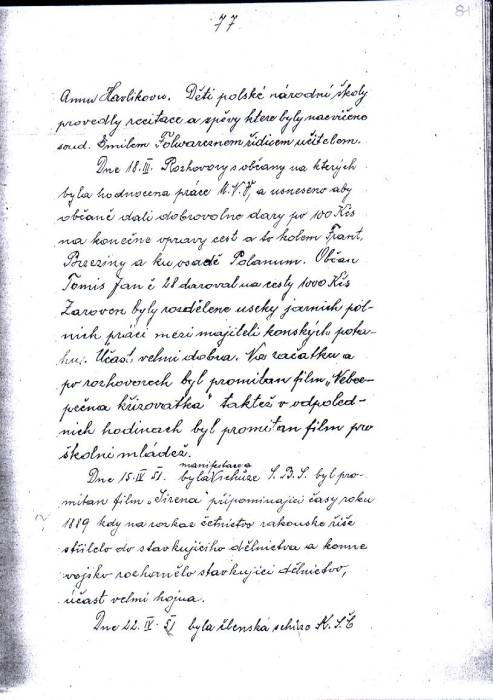 77
81
Annu Havlikovu. Děti polské národní školy
provedly recitace a zpěvy ktere byly nacvičeno
soud. Emilem Fólwarcznem řidicem učitelom.
Dne 18.III. Rozhovory s občany na kterých
byla hodnocena práce M.N.V., a usneseno aby
občaně dali dobrovolne dary po 100 Kčs
na konečne upravy cest a to kolem Frant.
Brzeziny a ku osadě Polanum. Občan
Tomis Jan č 28 daroval na cesty 1000 Kčs
Zaroven byly rozdělene useky jarnich pol-
nich práci mezi majiteli konských pota-
hu. Učast velmi dobra. Na začatku a
po rozhovorech byl promitan film „Nebez-
pečna křižovatka" taktež v odpoled-
nich hodinach byl promitan film pro
školni mládež.
Dne 15.IV 51. byla manifestacni schůze S.B.S. byl pro-
mitan film „Sirena" připominajici časy roku
1889 kdy na rozkaz četnictvo rakouske řiše
střilelo do stavkujiciho dělnictva a konne
vojsko rozhomělo stavkujici dělnictvo,
účast velmi hojna.
Dne 22.IV.51 byla členská schůzo K.S.Č